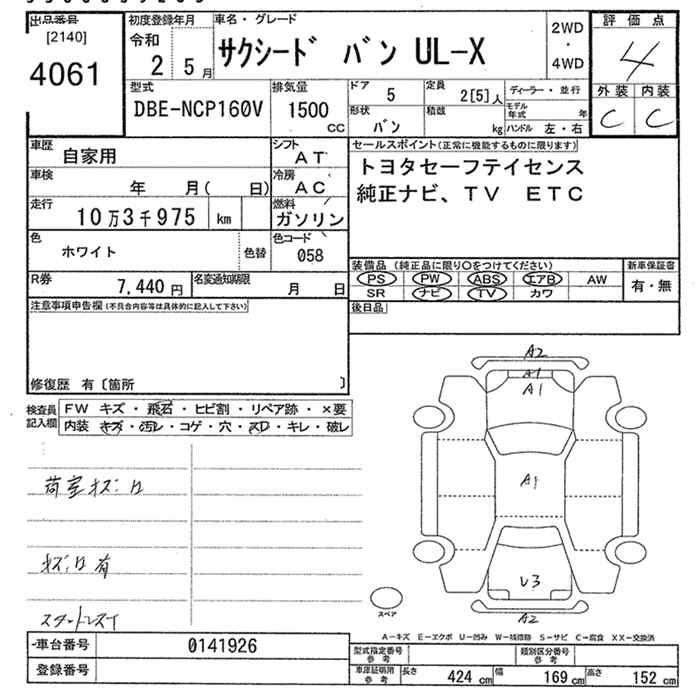 出品番号
[2140]
4061
初度登録年月
令和
2 5月
車名・グレード
サクシード バン UL-X
2WD
・
4WD
評価点
4
外装 内装
C C
型式
DBE-NCP160V
排気量
1500
CC
ドア
5
定員
2[5]人
形状
バン
積載
kg
ディーラー・並行
モデル年式 年
ハンドル 左・右
車歴
自家用
シフト
AT
車検
年 月( 日)
冷房
AC
走行
10万3千975 km
燃料
ガソリン
色
ホワイト
色替
色コード
058
R券
7,440円
名変通知期限
月 日
セールスポイント(正常に機能するものに限ります)
トヨタセーフテイセンス
純正ナビ、TV ETC
装備品 (純正品に限り○をつけてください)
PS PW ABS エアB AW
SR ナビ TV カワ
新車保証書
有・無
後日品
注意事項申告欄(不具合内容等は具体的に記入して下さい)
修復歴 有〔箇所 〕
検査員
記入欄
FW キズ・飛石・ヒビ割・リペア跡・×要
内装 キズ・汚レ・コゲ・穴・スレ・キレ・破レ
荷室キズ凹
キズ凹有
スタートレスイ
A2
A1
A1
A1
U3
A2
スペア
A−キズ E−エクボ U−凹み W−補修跡 S−サビ C−腐食 XX−交換済
車台番号
0141926
登録番号
型式指定番号
参考
類別区分番号
参考
車庫証明用
参考
長さ 424cm 幅 169cm 高さ 152cm